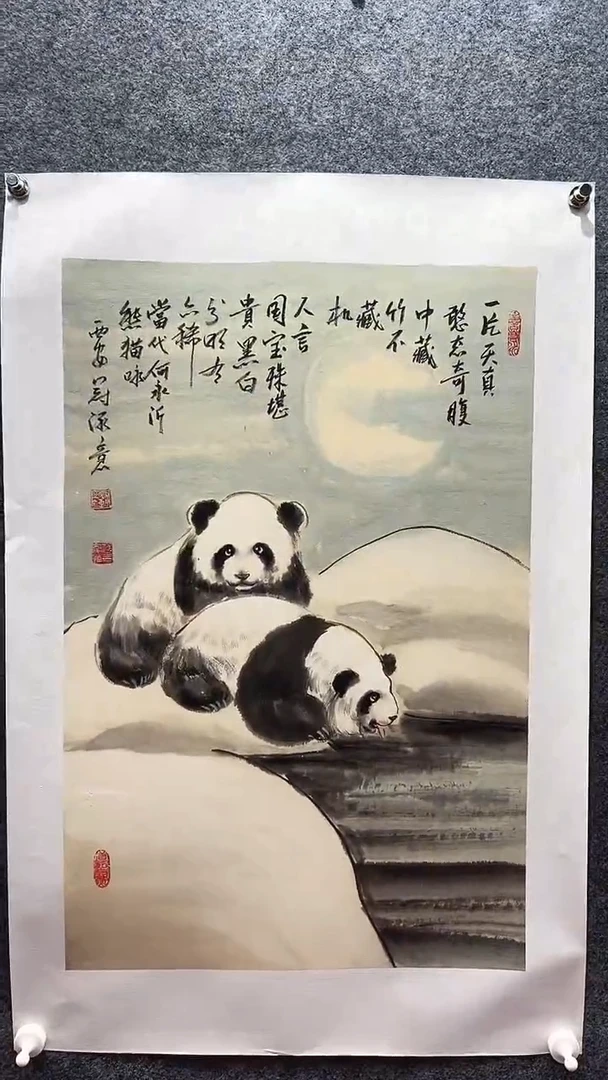 一片天真
憨态奇腹
中藏
竹不
藏
机
人言
国宝殊堪
贵黑白
分明有
六稀
當代何永沂
熊猫咏